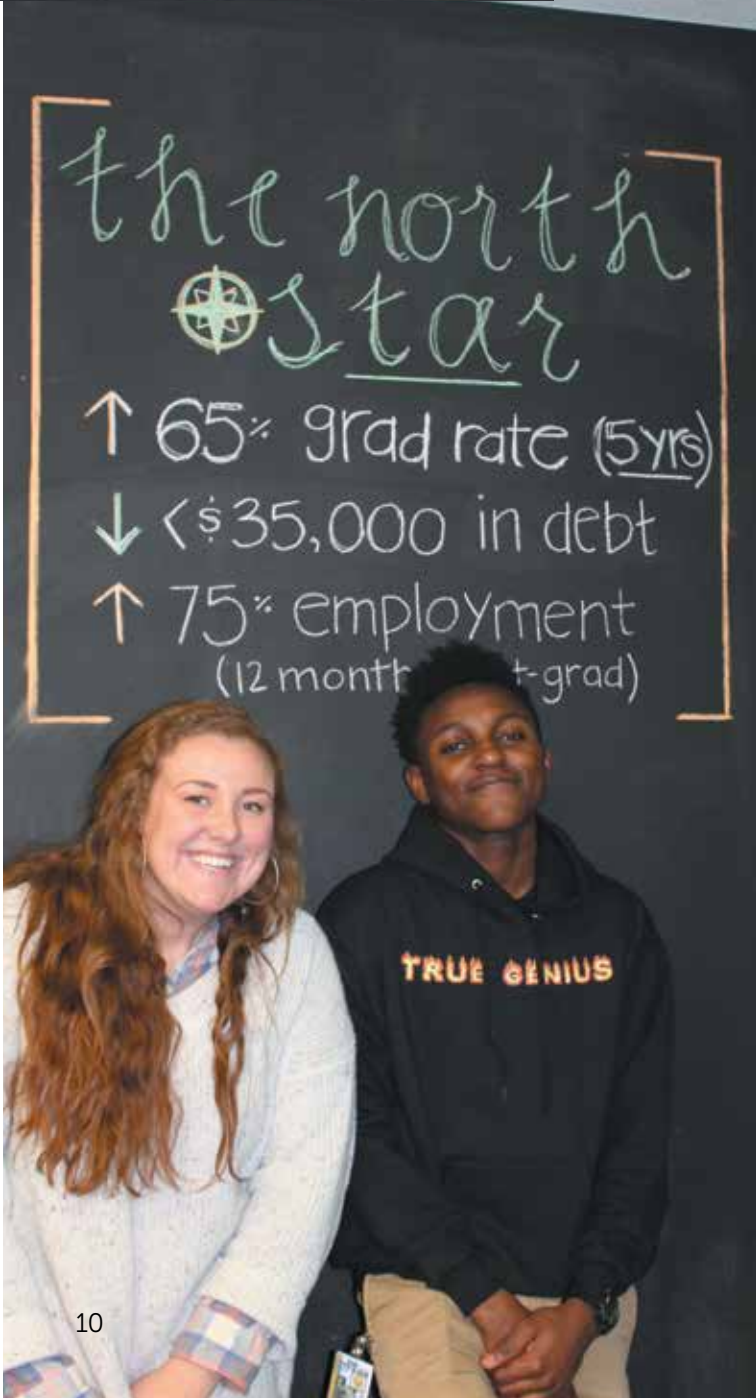 the north
star
↑ 65% grad rate (5yrs)
↓ <$35,000 in debt
↑ 75% employment
(12 month t-grad)
TRUE GENIUS
10